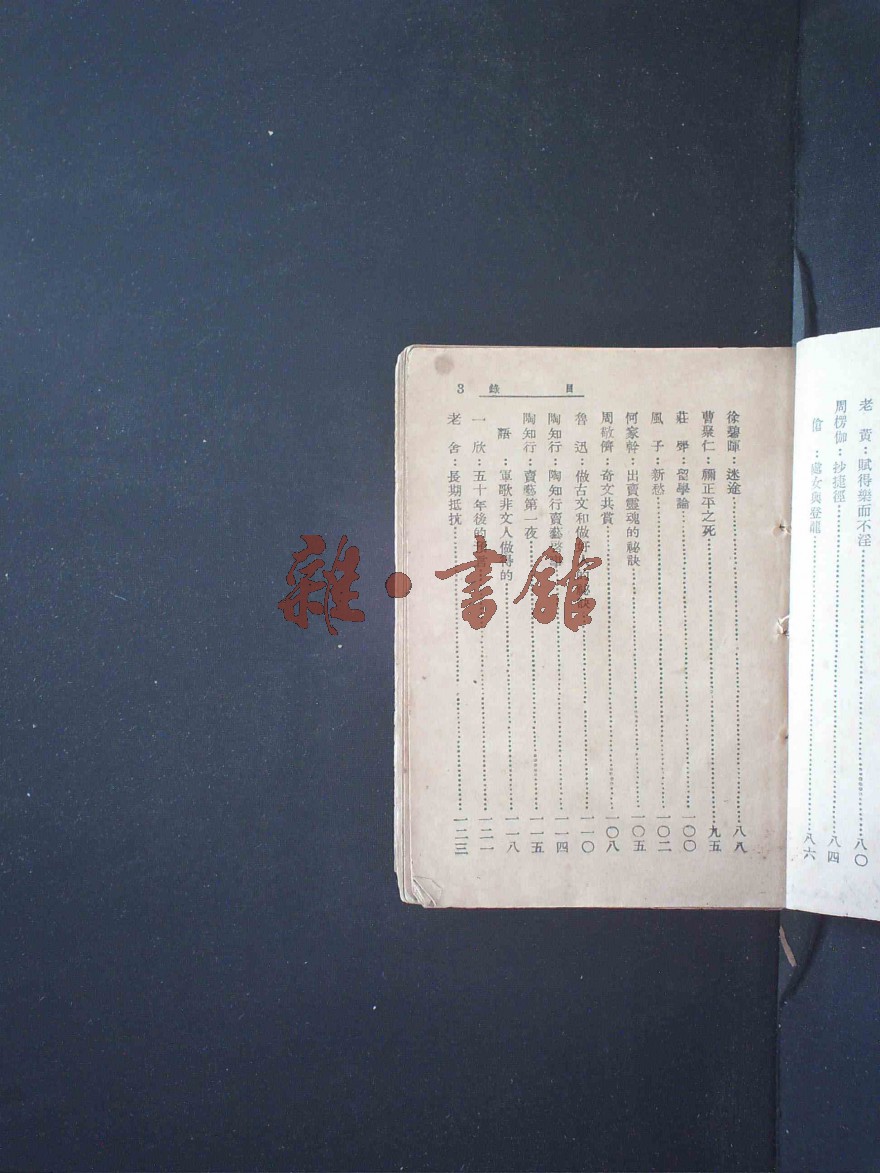 老　黃：賦得樂而不淫……八〇
周楞伽：抄捷徑……八四
　　：處女與登龍……八六
目錄　3
徐碧暉：迷途……八八
曹聚仁：禰正平之死……九五
莊　：留學論……一〇〇
風　子：新愁……一〇二
何家幹：出賣靈魂的祕訣……一〇五
周敬儕：奇文共賞……一〇八
魯　迅：做古文和做……一一〇
陶知行：陶知行賣藝……一一四
陶知行：賣藝第一夜……一一五
　語：軍歌非文人做得的……一一八
一　欣：五十年後的……一二一
老　舍：長期抵抗……一二三
雜·書館